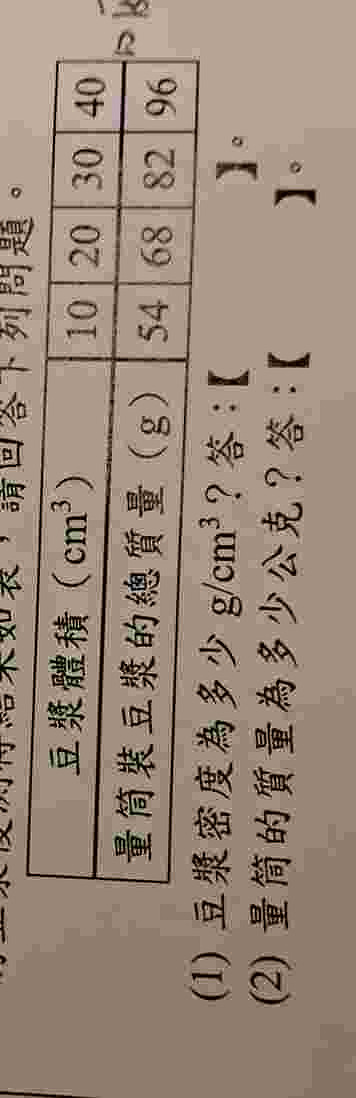 請回答下列問題。
豆漿體積（cm³） 10 20 30 40
量筒裝豆漿的總質量（g） 54 68 82 96
(1) 豆漿密度為多少 g/cm³？答：【 】。
(2) 量筒的質量為多少公克？答：【 】。